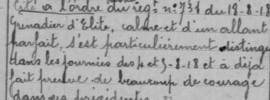 Cité à l'ordre du rég. n° 731 du 18-8-18
Grenadier d'Elite, calme et d'un allant
parfait, s'est particulièrement distingué
dans les journées des 4 et 5-8-18 et a déjà
fait preuve de beaucoup de courage
dans